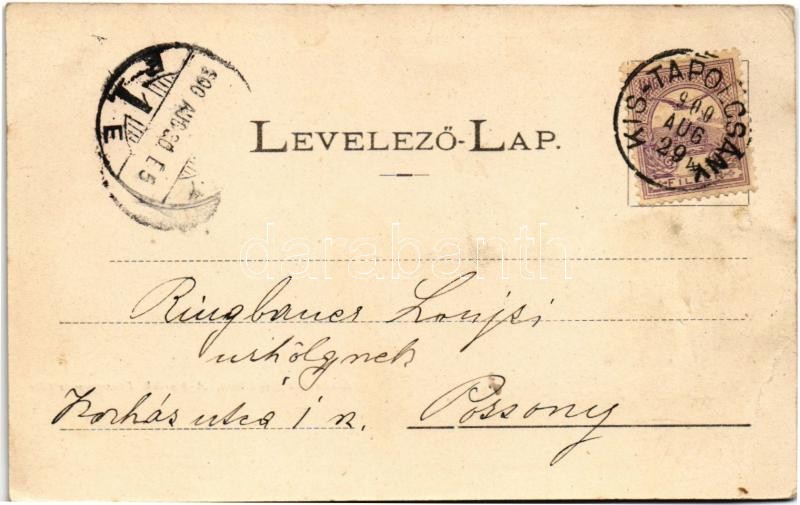 E 1
900 AUG 30. E 5
LEVELEZŐ-LAP.
KIS-TAPOLCSÁNY
900
AUG
29
darabanth
Ringbauer Loujzi
úrhölgynek
Kórház utca 1 n.
Possony